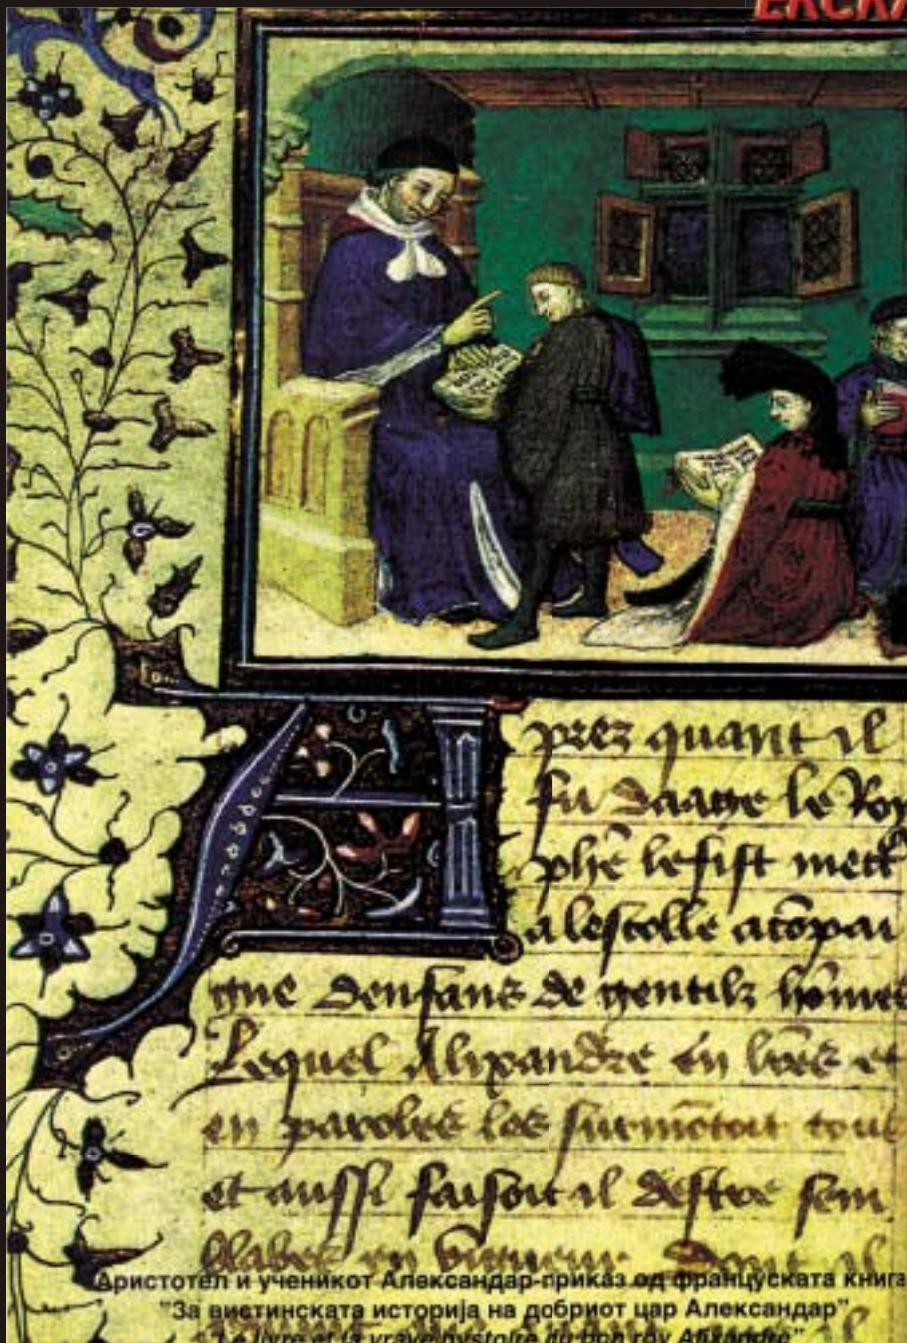 ЕКСКЛ
prez quant il
fu daage le Roy
phẽ le fist mett
a lescolle acõpai
gne denfans de gentilz hõmes
Lequel Alixandre en lrẽs et
en paroles les surmõtoit tous
et aussi faisoit il destre sem
blables en vigueur Dont il
Аристотел и ученикот Александар-приказ од француската книга
"За вистинската историја на добриот цар Александар"
"Le livre et la vraye hystoire du bon roy Alixandre"